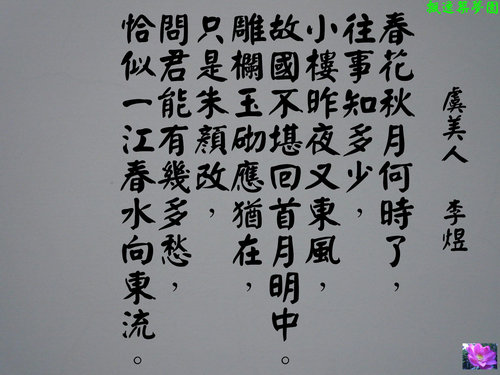 虞美人 李煜
春花秋月何時了，
往事知多少，
小樓昨夜又東風，
故國不堪回首月明中。
雕欄玉砌應猶在，
只是朱顏改，
問君能有幾多愁，
恰似一江春水向東流。